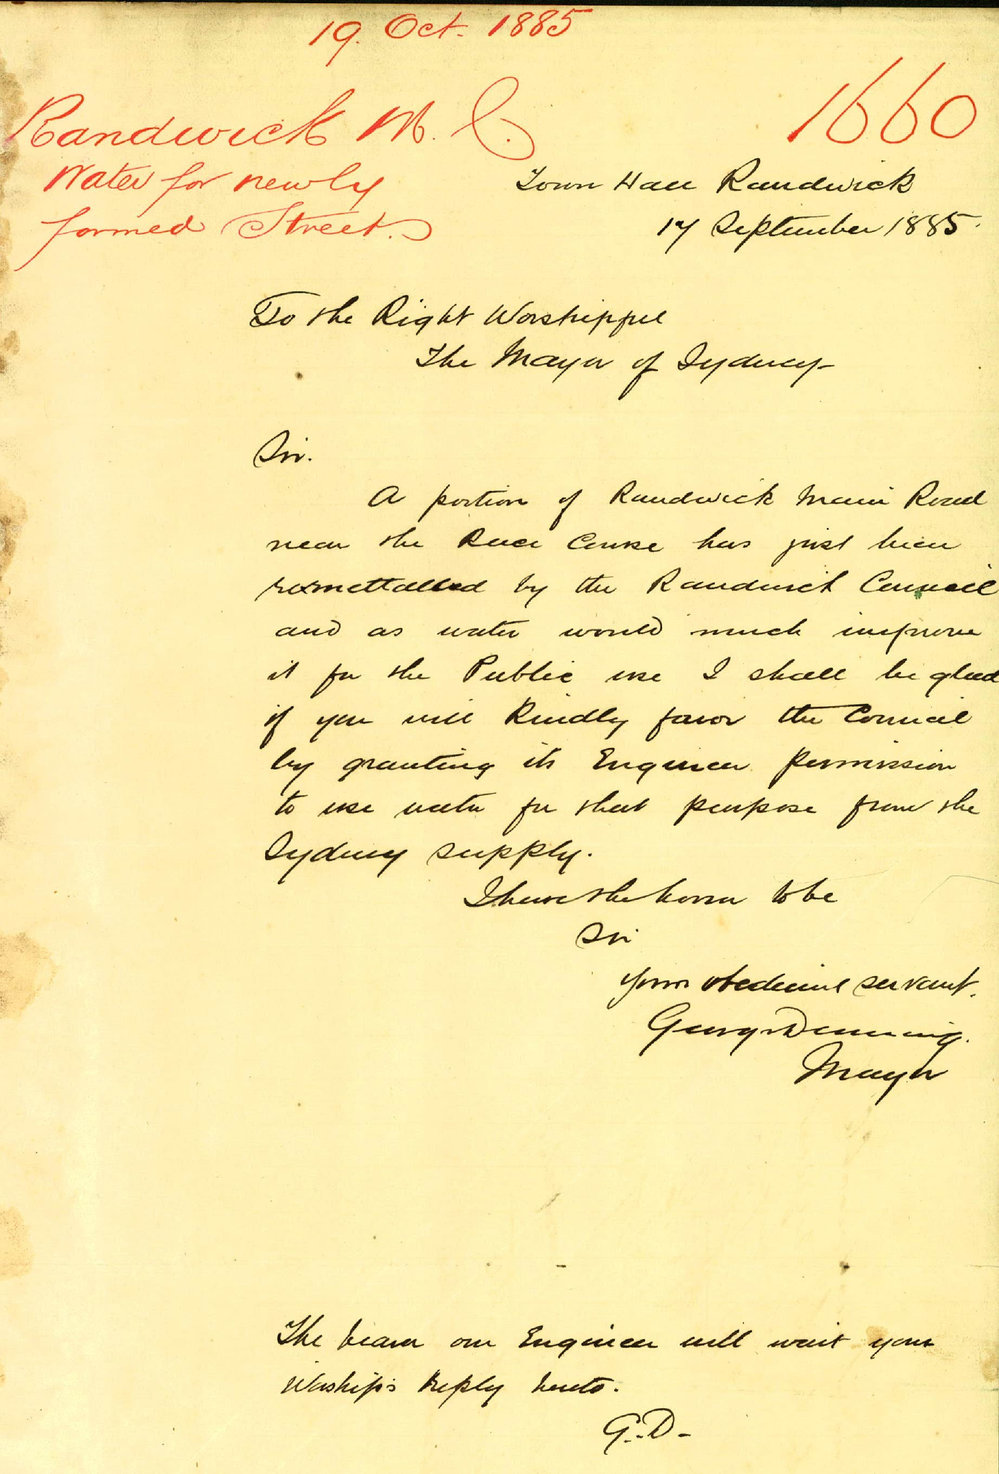 19. Oct. 1885
1660
Randwick M. C.
Water for newly
formed Street.
Town Hall Randwick
17 September 1885.
To the Right Worshipful
The Mayor of Sydney
Sir.
A portion of Randwick Main Road
near the Race Course has just been
remettalled by the Randwick Council
and as water would much improve
it for the Public use I shall be glad
if you will kindly favor the Council
by granting its Engineer permission
to use water for that purpose from the
Sydney supply.
I have the honor to be
Sir
Your obedient servant.
George Denning.
Mayor
The bearer our Engineer will wait your
Worship's reply hereto.
G.D-